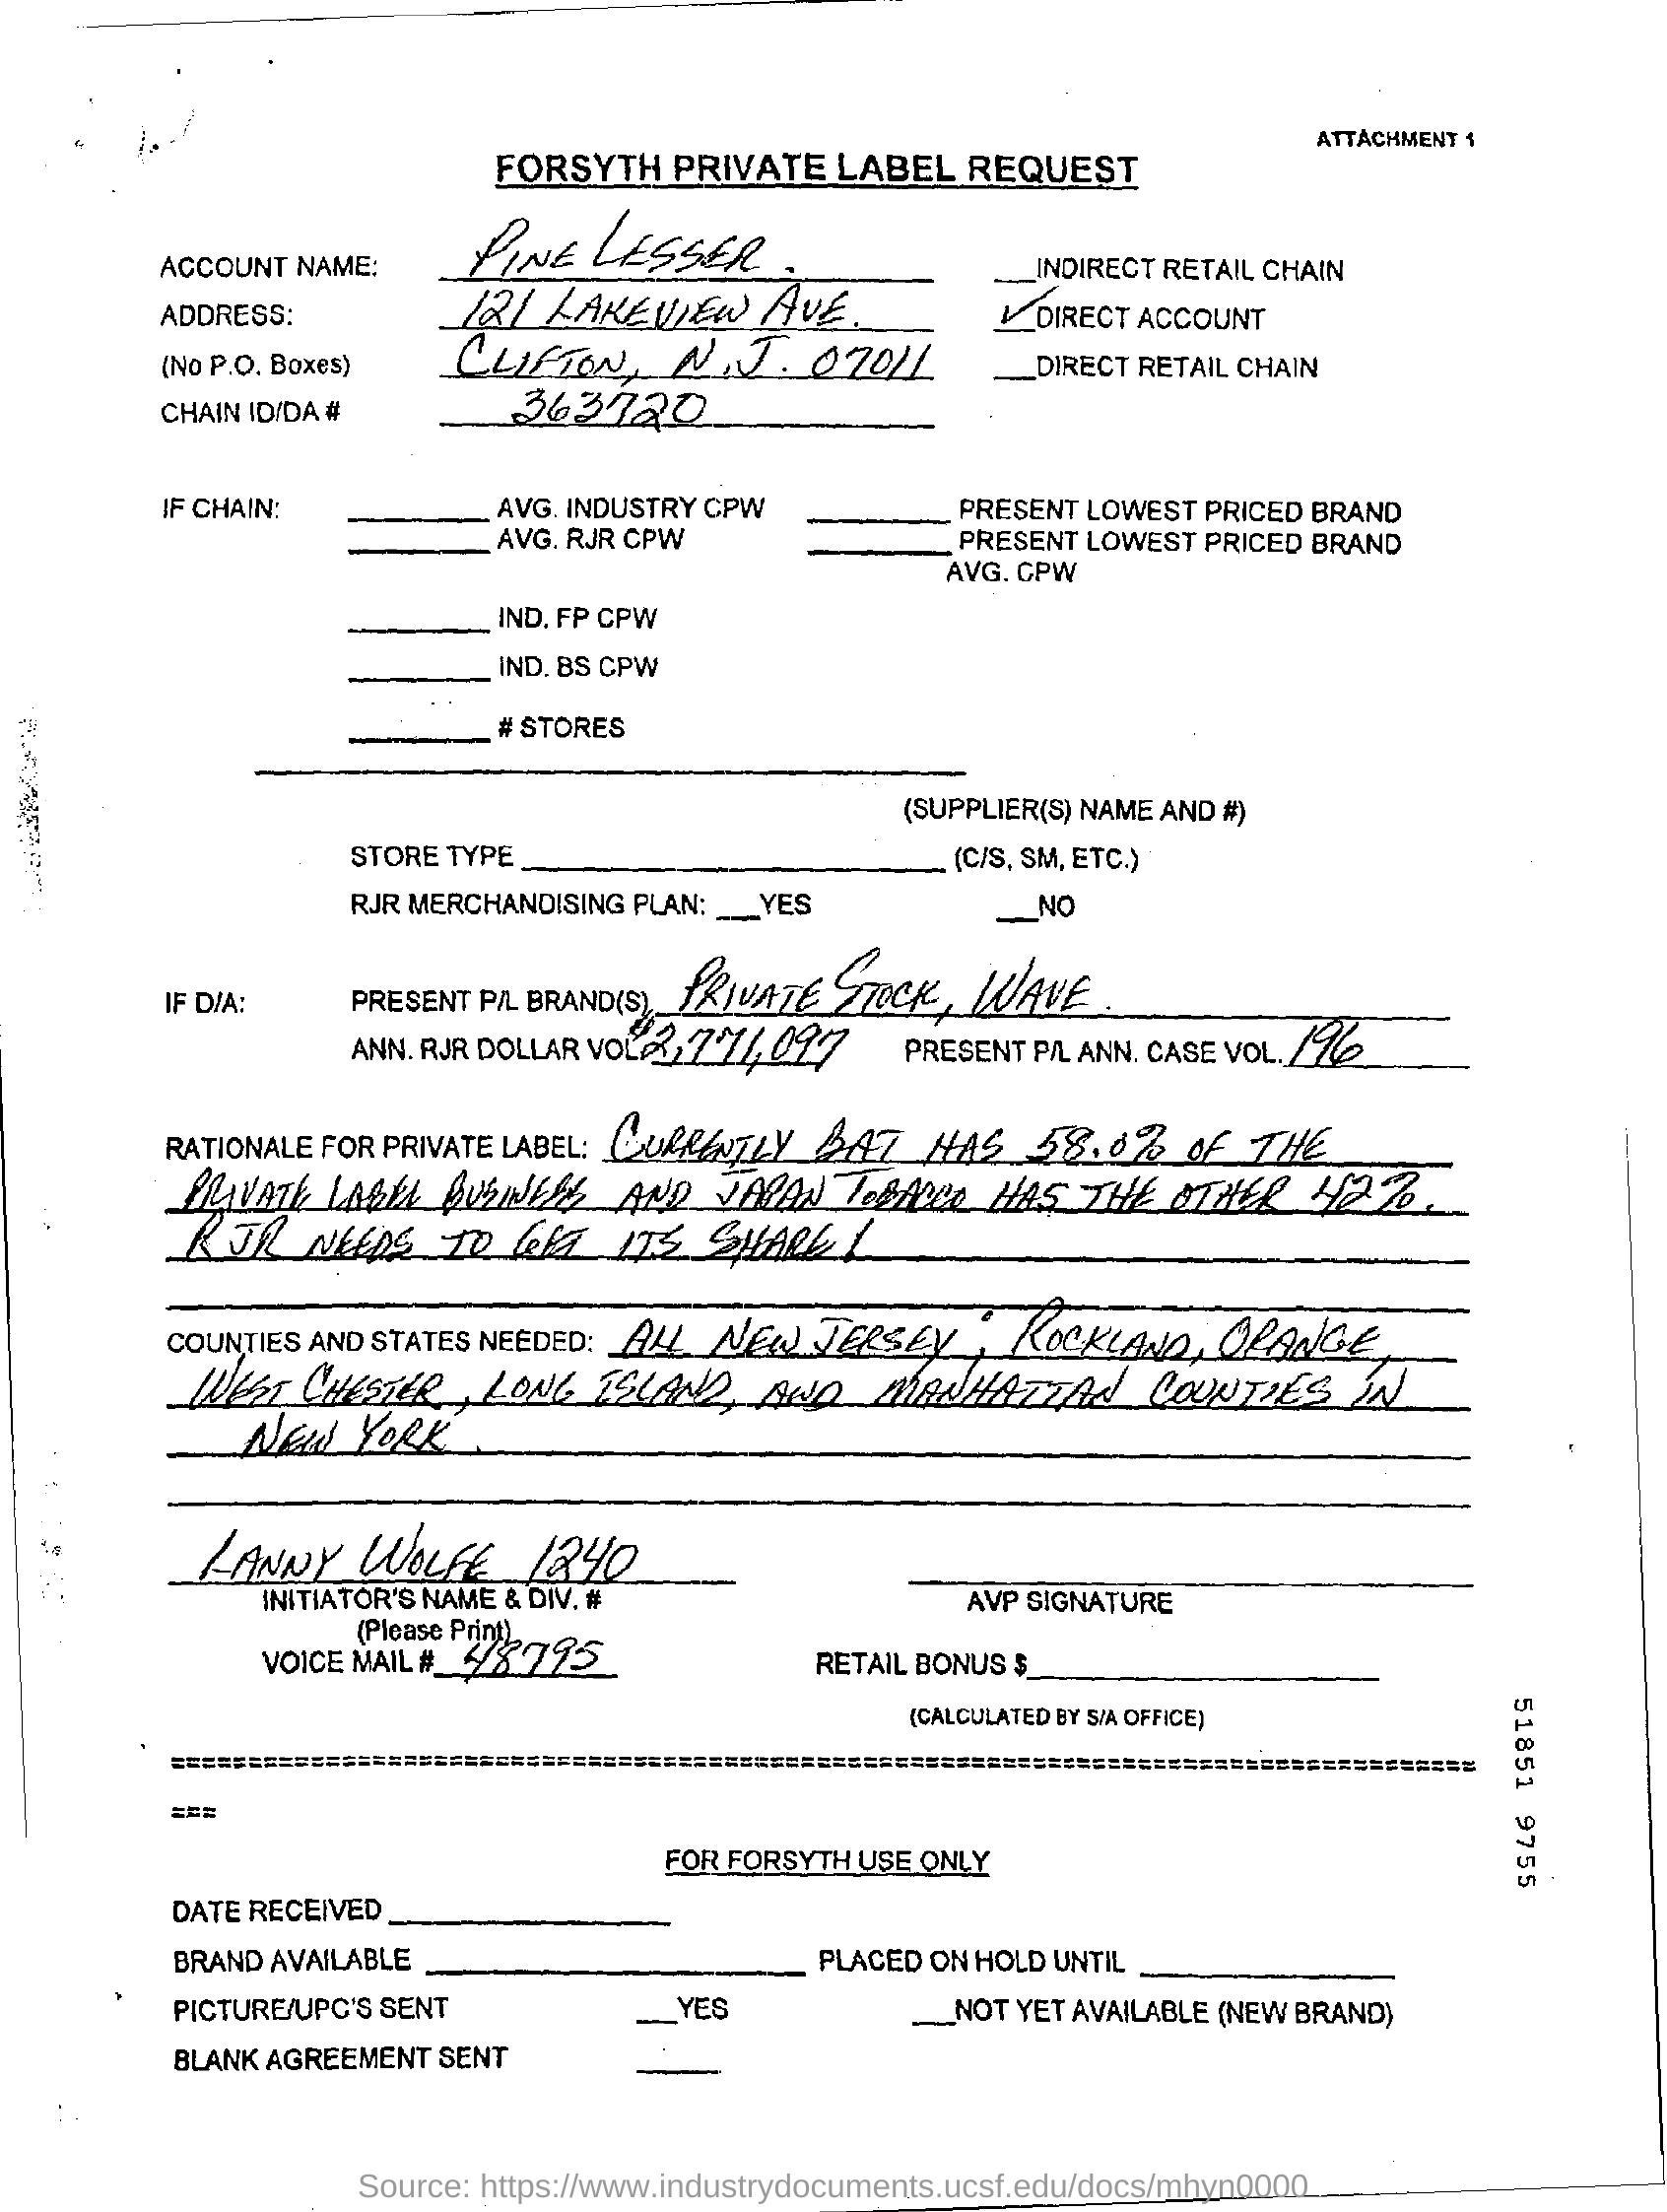 ATTACHMENT 1
FORSYTH PRIVATE LABEL REQUEST
ACCOUNT NAME: PINE LESSER. __INDIRECT RETAIL CHAIN
ADDRESS: 121 LAKEVIEW AVE. ✓DIRECT ACCOUNT
(No P.O. Boxes) CLIFTON, N.J. 07011 __DIRECT RETAIL CHAIN
CHAIN ID/DA # 363720
IF CHAIN: ______ AVG. INDUSTRY CPW ______ PRESENT LOWEST PRICED BRAND
______ AVG. RJR CPW ______ PRESENT LOWEST PRICED BRAND
AVG. CPW
______ IND. FP CPW
______ IND. BS CPW
______ # STORES
(SUPPLIER(S) NAME AND #)
STORE TYPE ______ (C/S, SM, ETC.)
RJR MERCHANDISING PLAN: __YES __NO
IF D/A: PRESENT P/L BRAND(S) PRIVATE STOCK, WAVE.
ANN. RJR DOLLAR VOL $2,771,097 PRESENT P/L ANN. CASE VOL. 196
RATIONALE FOR PRIVATE LABEL: CURRENTLY BAT HAS 58.0% OF THE
PRIVATE LABEL BUSINESS AND JAPAN TOBACCO HAS THE OTHER 42%.
RJR NEEDS TO GET ITS SHARE!
COUNTIES AND STATES NEEDED: ALL NEW JERSEY; ROCKLAND, ORANGE,
WEST CHESTER, LONG ISLAND, AND MANHATTAN COUNTIES IN
NEW YORK.
LANNY WOLFE 1240
INITIATOR'S NAME & DIV. # AVP SIGNATURE
(Please Print)
VOICE MAIL # 48795 RETAIL BONUS $______
(CALCULATED BY S/A OFFICE)
====================================================================================
===
FOR FORSYTH USE ONLY
DATE RECEIVED ______
BRAND AVAILABLE ______ PLACED ON HOLD UNTIL ______
PICTURE/UPC'S SENT __YES __NOT YET AVAILABLE (NEW BRAND)
BLANK AGREEMENT SENT ____
51851 9755
Source: https://www.industrydocuments.ucsf.edu/docs/mhyn0000